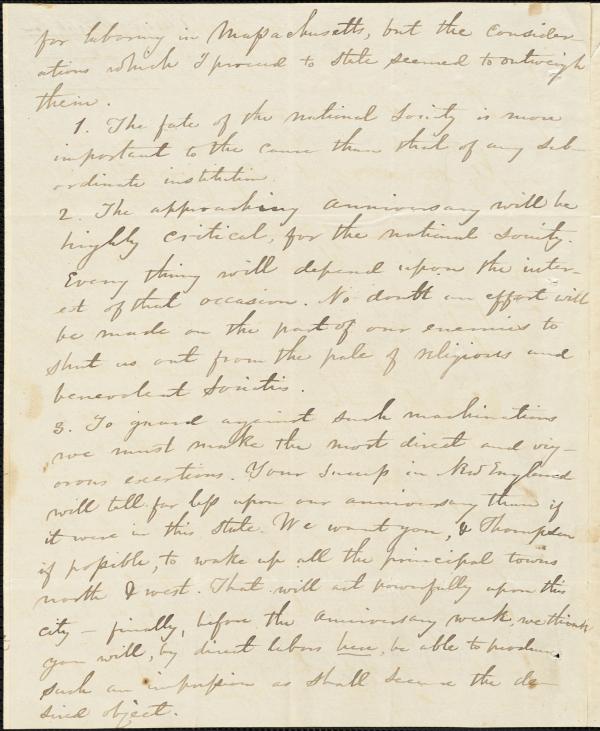 for laboring in Massachusetts, but the consider-
ations which I proceed to state seemed to outweigh
them.
1. The fate of the national Society is more
important to the cause than that of any sub-
ordinate institution.
2. The approaching anniversary will be
highly critical, for the national Society.
Every thing will depend upon the inter-
est of that occasion. No doubt an effort will
be made on the part of our enemies to
shut us out from the pale of religious and
benevolent Societies.
3. To guard against such machinations
we must make the most direct and vig-
orous exertions. Your success in New England
will tell far less upon our anniversary than if
it were in this State. We want you, & Thompson
if possible, to wake up all the principal towns
north & west. That will act powerfully upon this
city – finally, before the anniversary week, we think
you will, by direct labors here, be able to produce
such an impression as shall secure the de-
sired object.